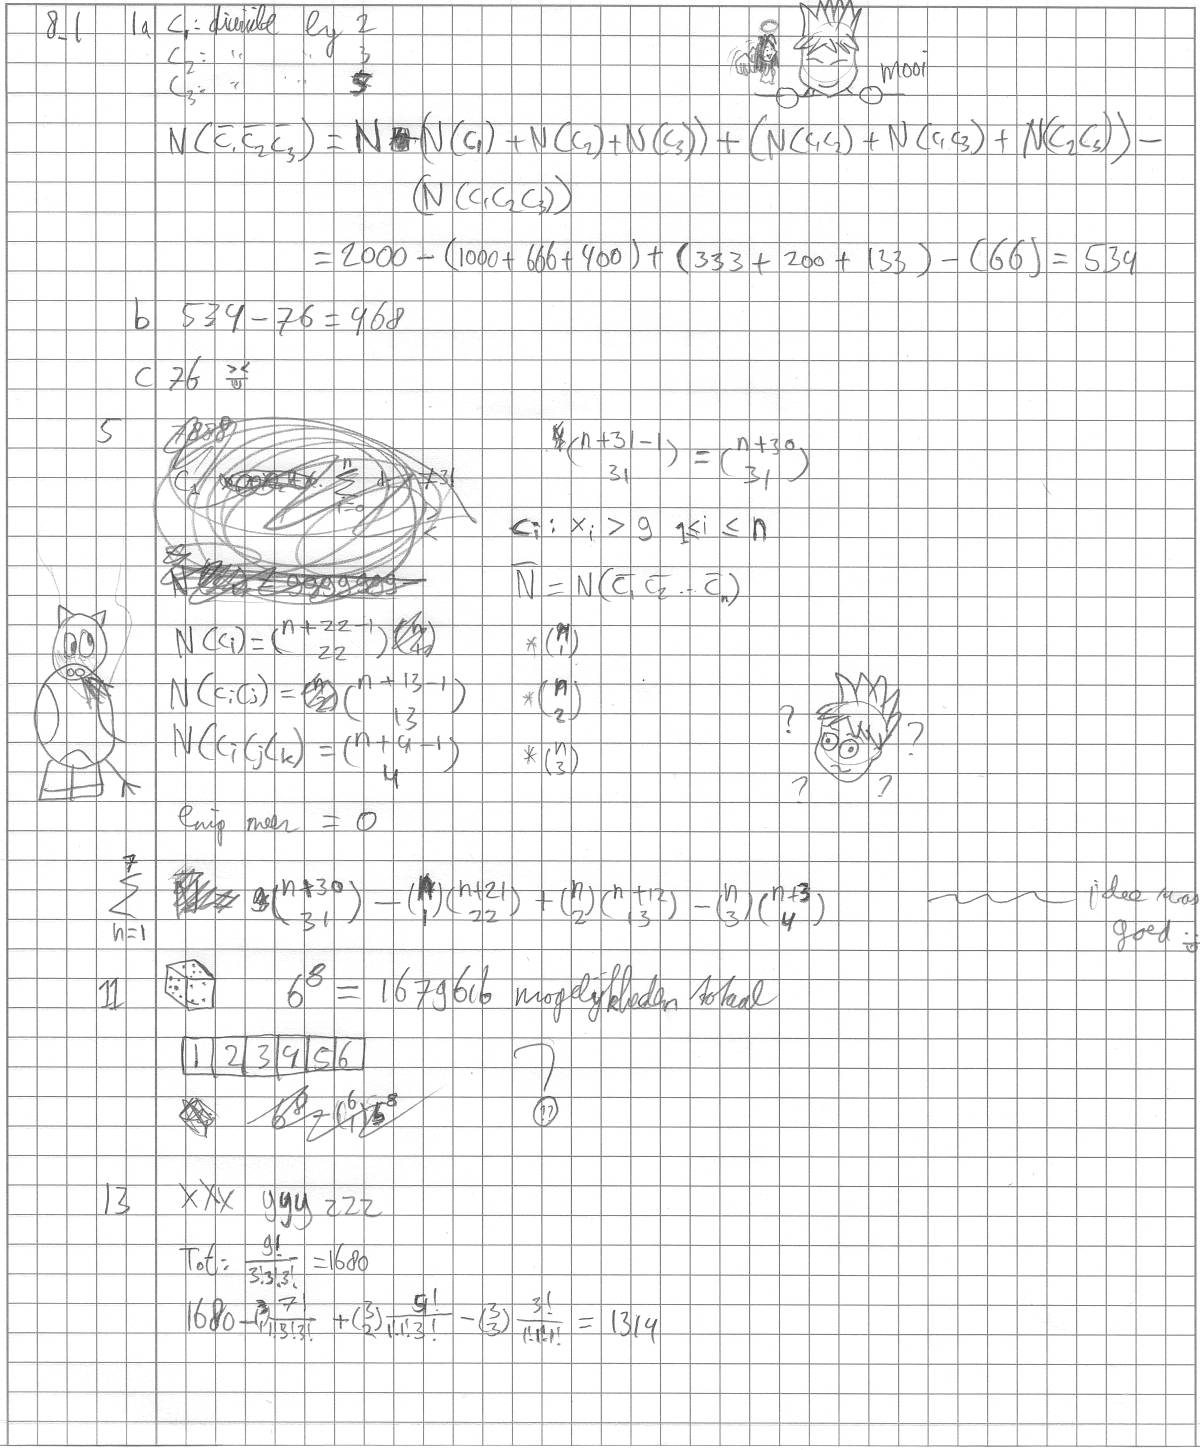 8.1 1a C₁ = divisible by 2
C₂ = " " 3
C₃ = " " 5
mooi
N(c̄₁c̄₂c̄₃) = N - (N(c₁) + N(c₂) + N(c₃)) + (N(c₁c₂) + N(c₁c₃) + N(c₂c₃)) -
(N(c₁c₂c₃))
= 2000 - (1000 + 666 + 400) + (333 + 200 + 133) - (66) = 534
b 534 - 76 = 468
c 76
5
(n+31-1 31) = (n+30 31)
cᵢ : xᵢ > 9 1 ≤ i ≤ n
N̄ = N(c̄₁ c̄₂ ... c̄ₙ)
N(cᵢ) = (n+22-1 22) * (n 1)
N(cᵢcⱼ) = (n+13-1 13) * (n 2)
N(cᵢcⱼcₖ) = (n+4-1 4) * (n 3)
? ? ? ?
meer = 0
7 Σ n=1 (n+30 31) - (n 1)(n+21 22) + (n 2)(n+12 13) - (n 3)(n+3 4)
idee was
goed
11 6⁸ = 1679616 mogelijkheden totaal
1 2 3 4 5 6 ?
6⁸ - (6 1) 5⁸ ??
13 xxx yyy zzz
Tot: 9!/3!3!3! = 1680
1680 - (3 1) 7!/1!3!3! + (3 2) 5!/1!1!3! - (3 3) 3!/1!1!1! = 1314